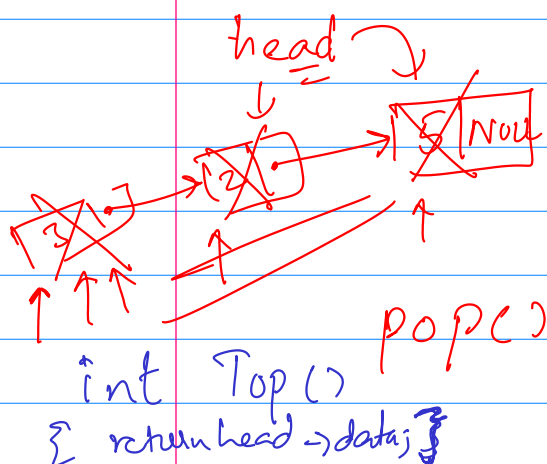 head
5 Null
2
3
pop()
int Top()
{ return head->data; }